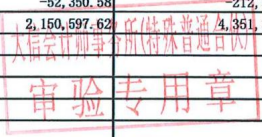 -52,350.58 -212,
2,150,597.62 4,351,
大信会计师事务所(特殊普通合伙)
审验专用章